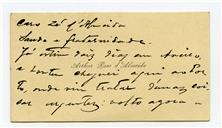 Caro Zé d'Almeida
Saude e fraternidade.
Já estive dois dias em Aveiro,
Arthur Paes d'Almeida
e hontem cheguei aqui ao Por
to, onde vim tratar d'umas coi
sas urgentes: volto agora a